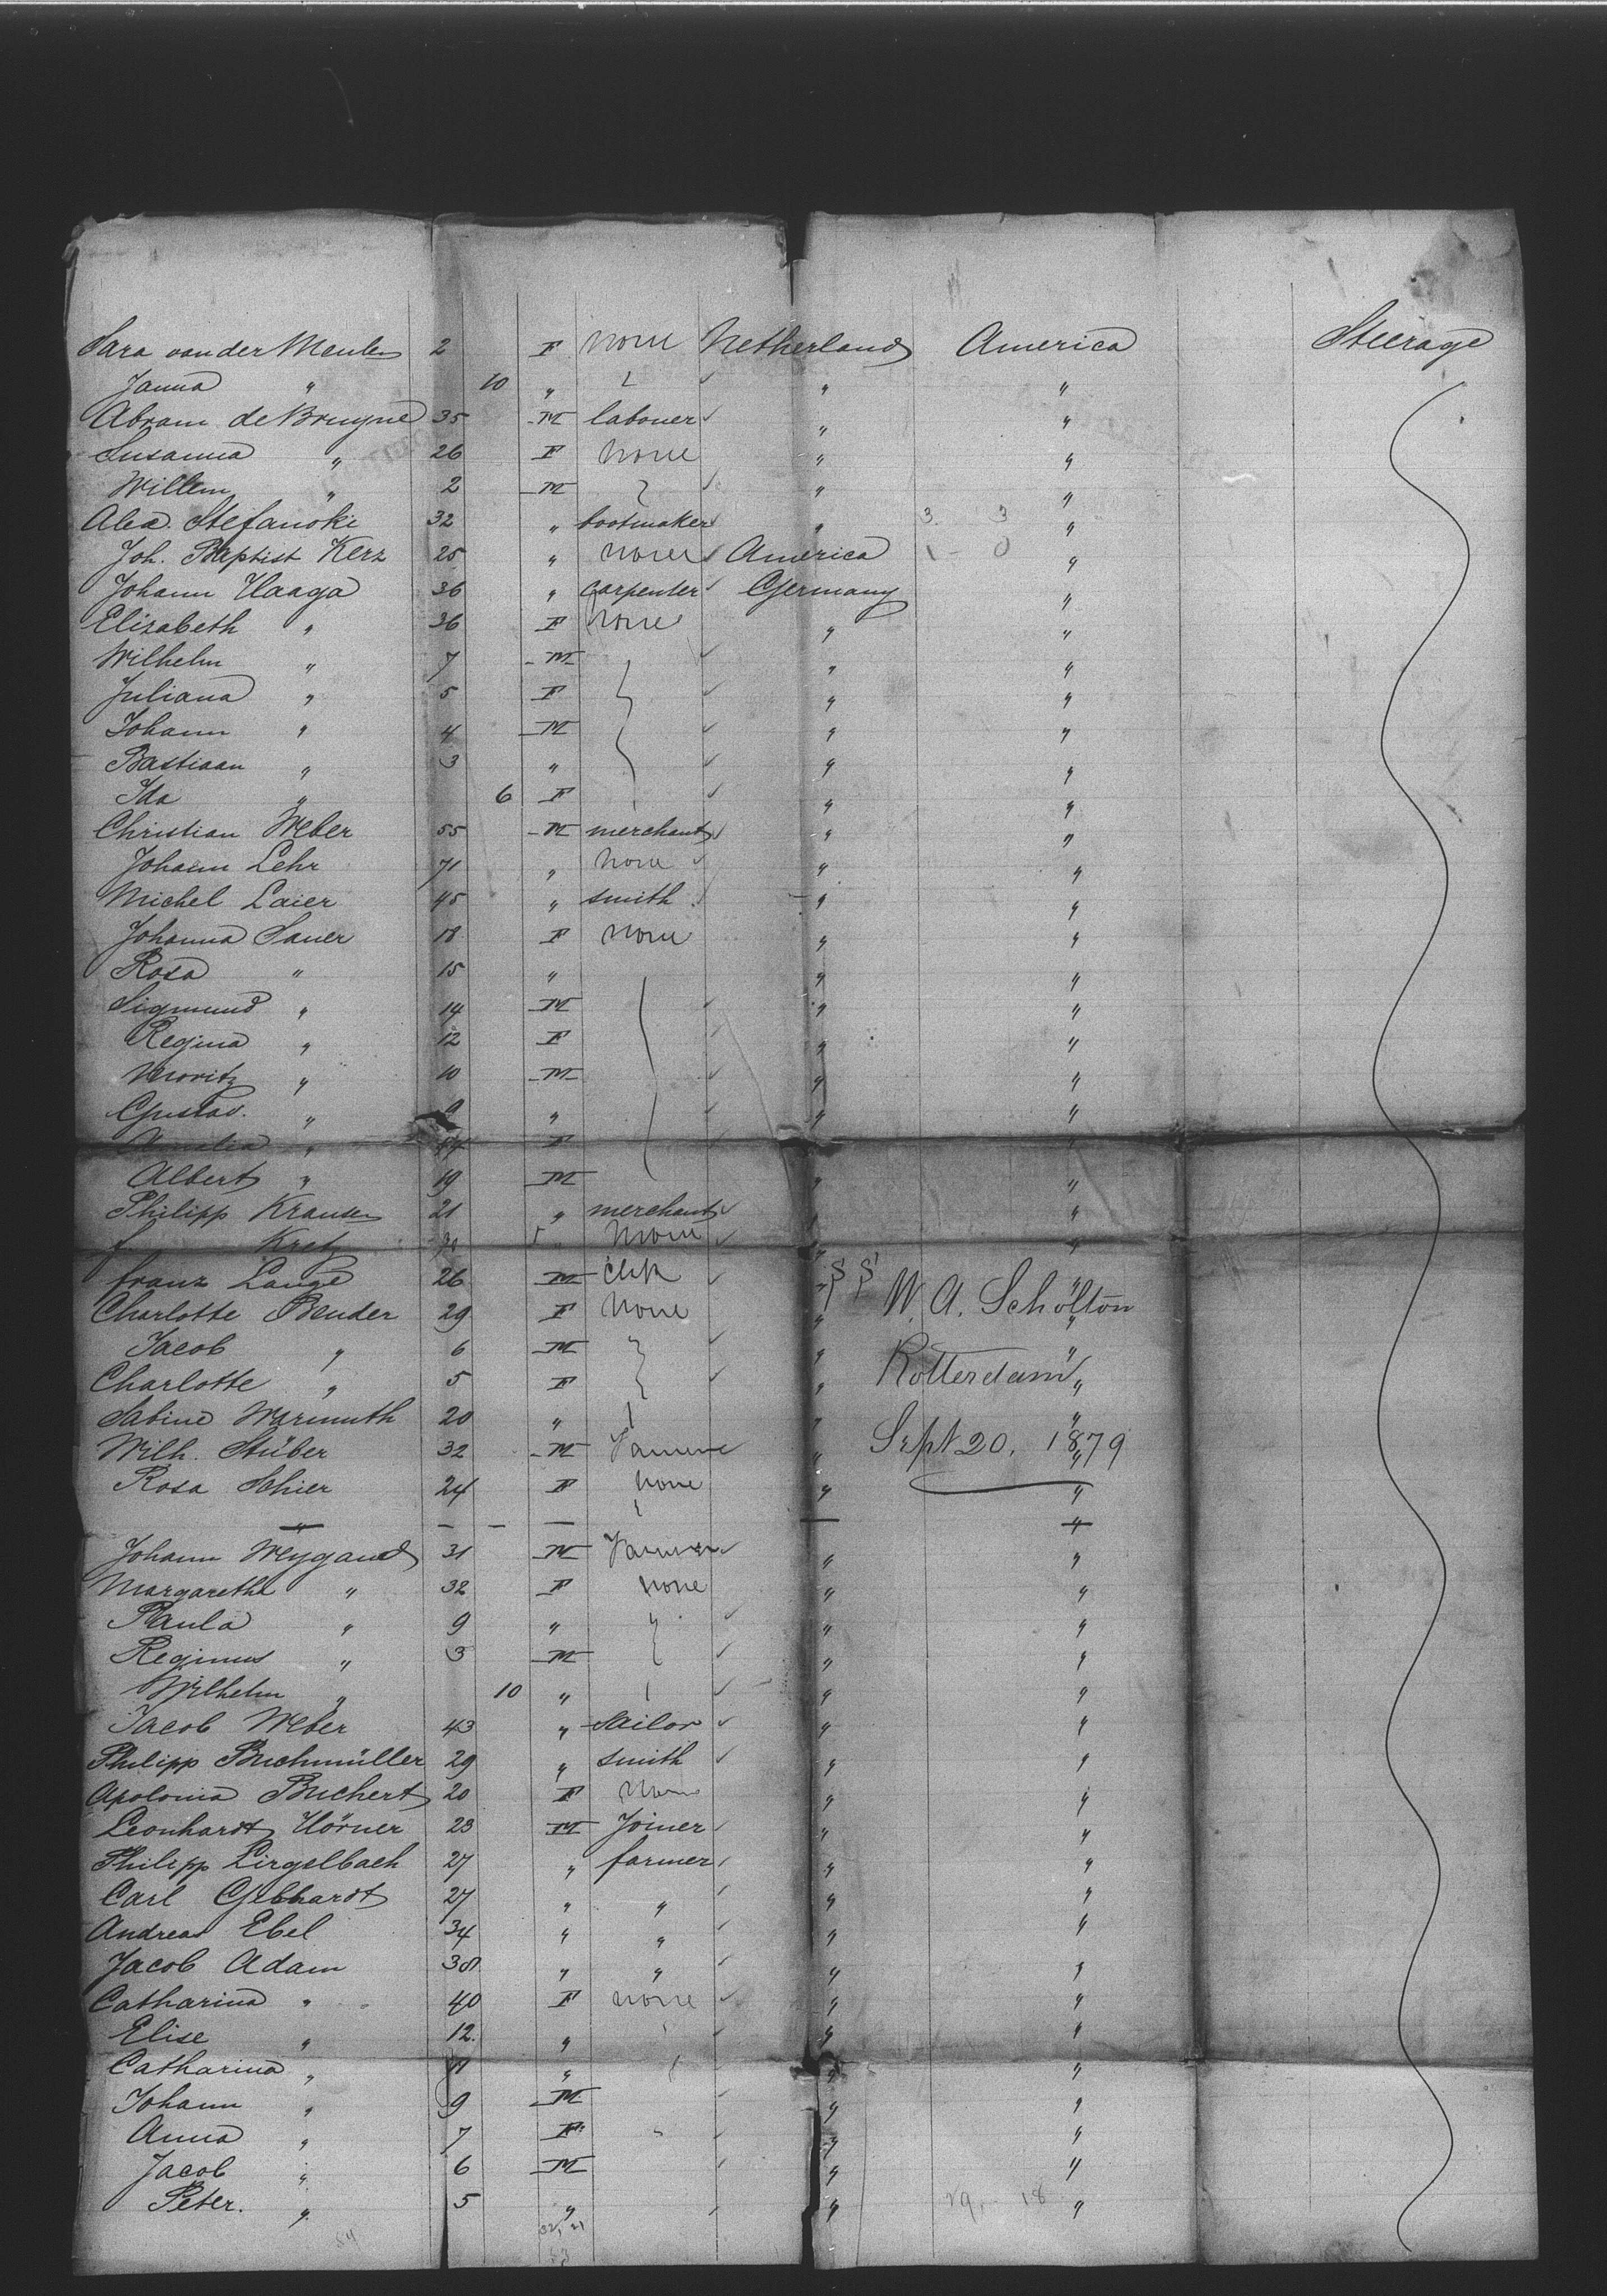 Sara van der Meulen 2 F none Netherland America Steerage
Janna " 10 " " "
Abram de Bruyne 35 M labouer " "
Susanna " 26 F none " "
Willem " 2 M " "
Alex. Stefanoki 32 " bootmaker " 3. 3 "
Joh. Baptist Kerz 25 " none America "
Johann Haaga 36 " carpenter Germany "
Elizabeth " 36 F none " "
Wilhelm " 7 M " "
Juliana " 5 F " "
Johann " 4 M " "
Bastiaan " 3 " " "
Ida " 6 F " "
Christian Weber 55 M merchant " "
Johann Lehr 71 " none " "
Michel Laier 45 " smith " "
Johanna Sauer 18 F none " "
Rosa " 15 " " "
Sigmund " 14 M " "
Regina " 12 F " "
Moritz " 10 M " "
Gustav. " 9 " " "
Amalia " F "
Albert " 19 M " "
Philipp Krausen 21 " merchant " "
f. Kretz none " "
franz Lange 26 M Clk " "
S S W. A. Scholton
Charlotte Bender 29 F none " "
Jacob " 6 M " "
Rotterdam
Charlotte " 5 F " "
Sabine Warmuth 20 " " "
Sept 20, 1879
Wilh. Stüber 32 M " "
Rosa Schier 24 F none " "
— " — — — — "
Johann Weygand 31 M " "
Margaretha " 32 F none " "
Paula " 9 " " "
Reginus " 3 M " "
Wilhelm " 10 " " "
Jacob Weber 43 " Sailor " "
Philipp Buchmüller 29 " smith " "
Apolonia Buchert 20 F none " "
Leonhardt Hörner 23 M Joiner " "
Philipp Lirgelbach 27 " farmer " "
Carl Gebhardt 27 " " " "
Andreas Ebel 34 " " " "
Jacob Adam 38 " " " "
Catharina " 40 F none " "
Elise " 12. " " "
Catharina " " " "
Johann " 9 M " "
Anna " 7 F " "
Jacob " 6 M " "
Peter. " 5 " " 29, 18 "
84 32, 21
53